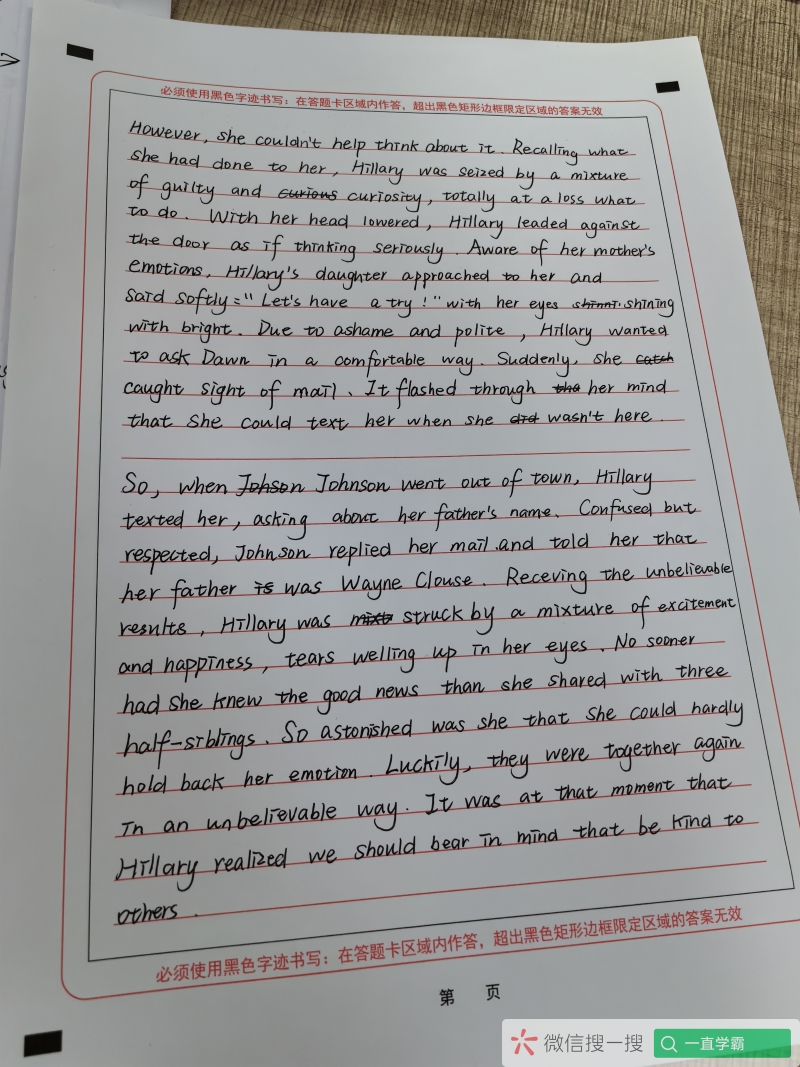 必须使用黑色字迹书写：在答题卡区域内作答，超出黑色矩形边框限定区域的答案无效
However, she couldn't help think about it. Recalling what
she had done to her, Hillary was seized by a mixture
of guilty and curious curiosity, totally at a loss what
to do. With her head lowered, Hillary leaded against
the door as if thinking seriously. Aware of her mother's
emotions, Hillary's daughter approached to her and
said softly="Let's have a try!" with her eyes shinni. shining
with bright. Due to ashame and polite, Hillary wanted
to ask Dawn in a comfortable way. Suddenly, she catch
caught sight of mail. It flashed through the her mind
that she could text her when she did wasn't here.
So, when Johson Johnson went out of town, Hillary
texted her, asking about her father's name. Confused but
respected, Johnson replied her mail and told her that
her father is was Wayne Clouse. Receving the unbelievable
results, Hillary was mixt struck by a mixture of excitement
and happiness, tears welling up in her eyes. No sooner
had she knew the good news than she shared with three
half-siblings. So astonished was she that she could hardly
hold back her emotion. Luckily, they were together again
in an unbelievable way. It was at that moment that
Hillary realized we should bear in mind that be kind to
others.
必须使用黑色字迹书写：在答题卡区域内作答，超出黑色矩形边框限定区域的答案无效
第 页
微信搜一搜
一直学霸